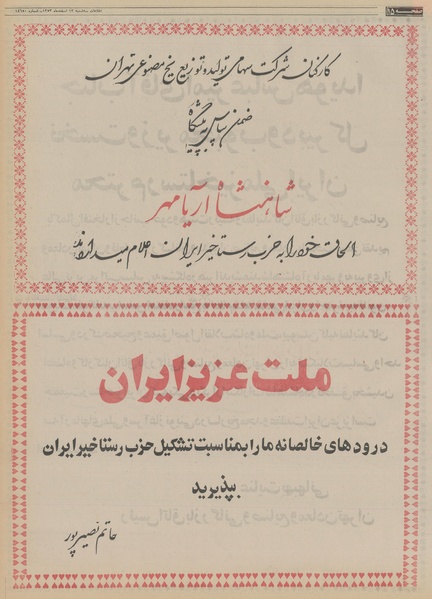 صفحه ۱۵
کارکنان شرکت سهامی تولید و توزیع یخ مصنوعی تهران
ضمن سپاس به پیشگاه
شاهنشاه آریامهر
الحاق خود را به حزب رستاخیز ایران اعلام میدارند
ملت عزیز ایران
درودهای خالصانه ما را بمناسبت تشکیل حزب رستاخیز ایران
بپذیرید
حاتم نصیرپور